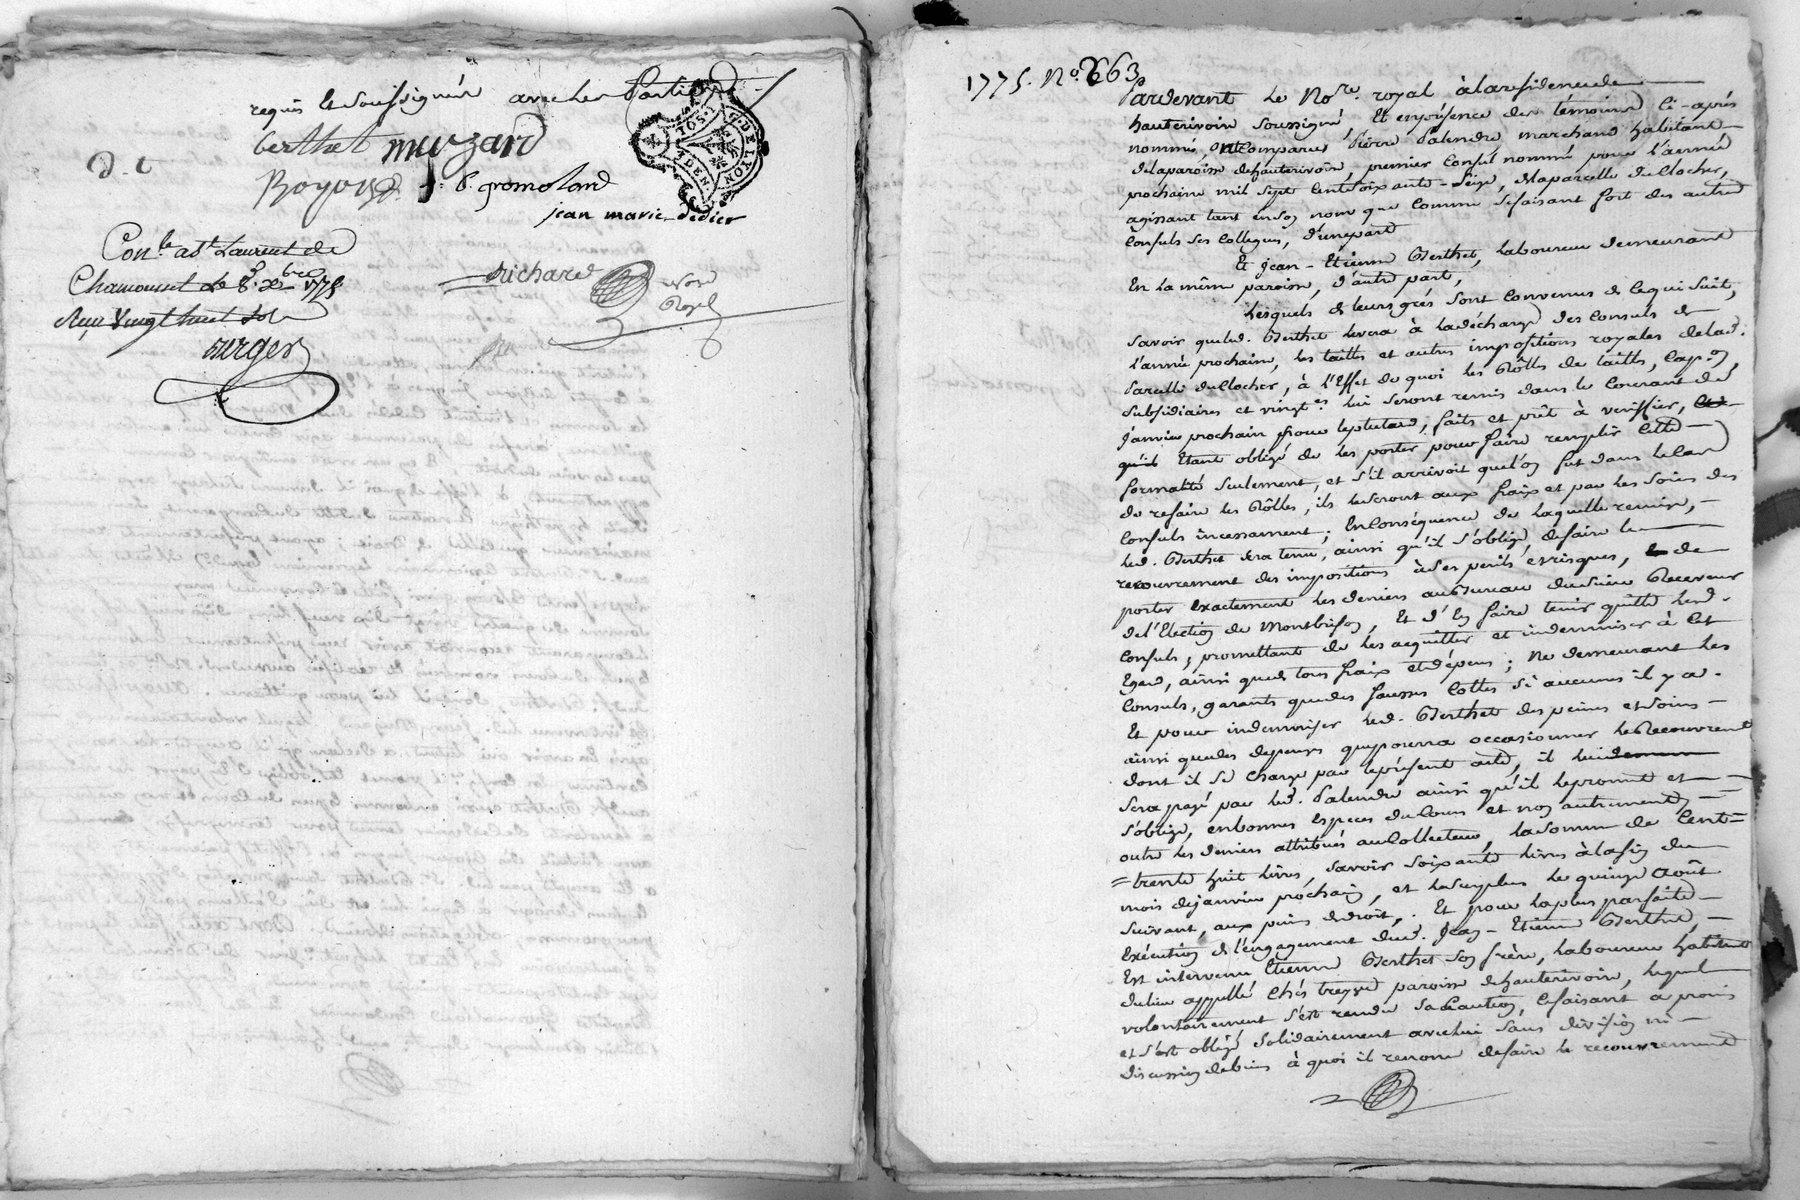 requis le soussigné avec les parties
berthet muzard
D. C
Royon J. B. gromolard
jean marie dedier
Con.le à St Laurent de
Chamousset le 8. Xbre 1775
Reçu vingt huit sols
surger
Richard
Nore
Royal
G. DE LION
1775. No. 663
Pardevant le No.re royal à la résidence de
hauterivoire soussigné Et en présence des témoins ci-après
nommés, ont comparus Pierre Palendre marchand habitant
de la paroisse de hauterivoire, premier consul nommé pour l'année
prochaine mil sept cent soixante-seize, de la parcelle du Clocher,
agissant tant en son nom que comme se faisant fort des autres
Consuls ses collegues, d'une part
Et jean-Etienne Berthet, laboureur demeurant
En la même paroisse, d'autre part,
Lesquels de leurs grés sont convenus de ce qui suit,
savoir que led. Berthet levera à la décharge des Consuls de
l'année prochaine, les tailles et autres impositions royales de lad.
parcelle du Clocher, à l'Effet de quoi les Rôlles de taille, Cap.on,
subsidiaires et vingt.es lui seront remis dans le courant de
janvier prochain pour le plutard, faits et prêt à veriffier,
qu'il Etant obligé de les porter pour faire remplir cette
formalité seulement, et s'il arrivoit que l'on fut dans le cas
de refaire les Rôlles, ils le seront aux fraix et par les soins des
Consuls incessament; En conséquence de laquelle remise,
led. Berthet sera tenu, ainsi qu'il s'oblige, de faire le
recouvrement des impositions à ses perils et risques, de
porter exactement les deniers au Bureau du sieur Receveur
de l'Election de Montbrison, Et d'En faire tenir quitte lesd.
Consuls, promettant de les acquitter et indemniser à cet
Egard, ainsi que de tous fraix et dépens; Ne demeurant les
Consuls, garants que des fausses Cottes si aucunes il y a.
Et pour indemniser led. Berthet des peines et soins
ainsi que des depenses que pourra occasionner le Recouvrement
dont il se charge par le présent acte, il lui
sera payé par led. Palendre ainsi qu'il le promet et
s'oblige, en bonnes Especes du Cours et non autrement,
outre les deniers attribués au Collecteur, la somme de Cent
trente huit livres, savoir soixante livres à la fin du
mois de janvier prochain, et le surplus le quinze Août
suivant, aux peines de droit. Et pour la plus parfaite
Exécution de l'Engagement dud. Jean-Etienne Berthet,
Est intervenu Etienne Berthet son frère, laboureur habitant
du lieu appellé Chés treyve paroisse de hauterivoire, lequel
volontairement s'est rendu sa Caution, ce faisant a promis
et s'est obligé solidairement avec lui sans division ni
discussion de biens à quoi il renonce de faire le recouvrement